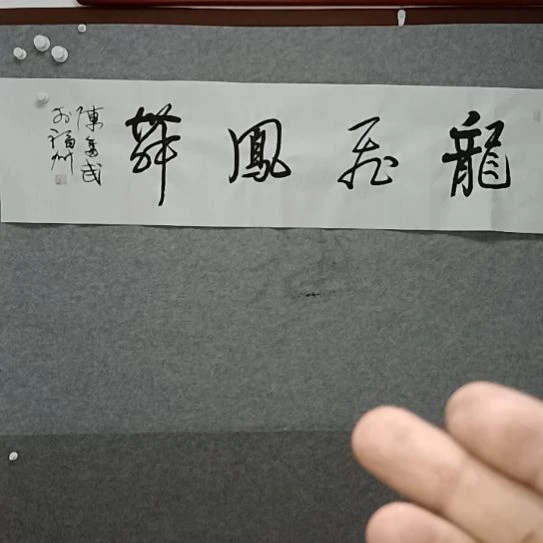 龍飛鳳舞
陳
於福州